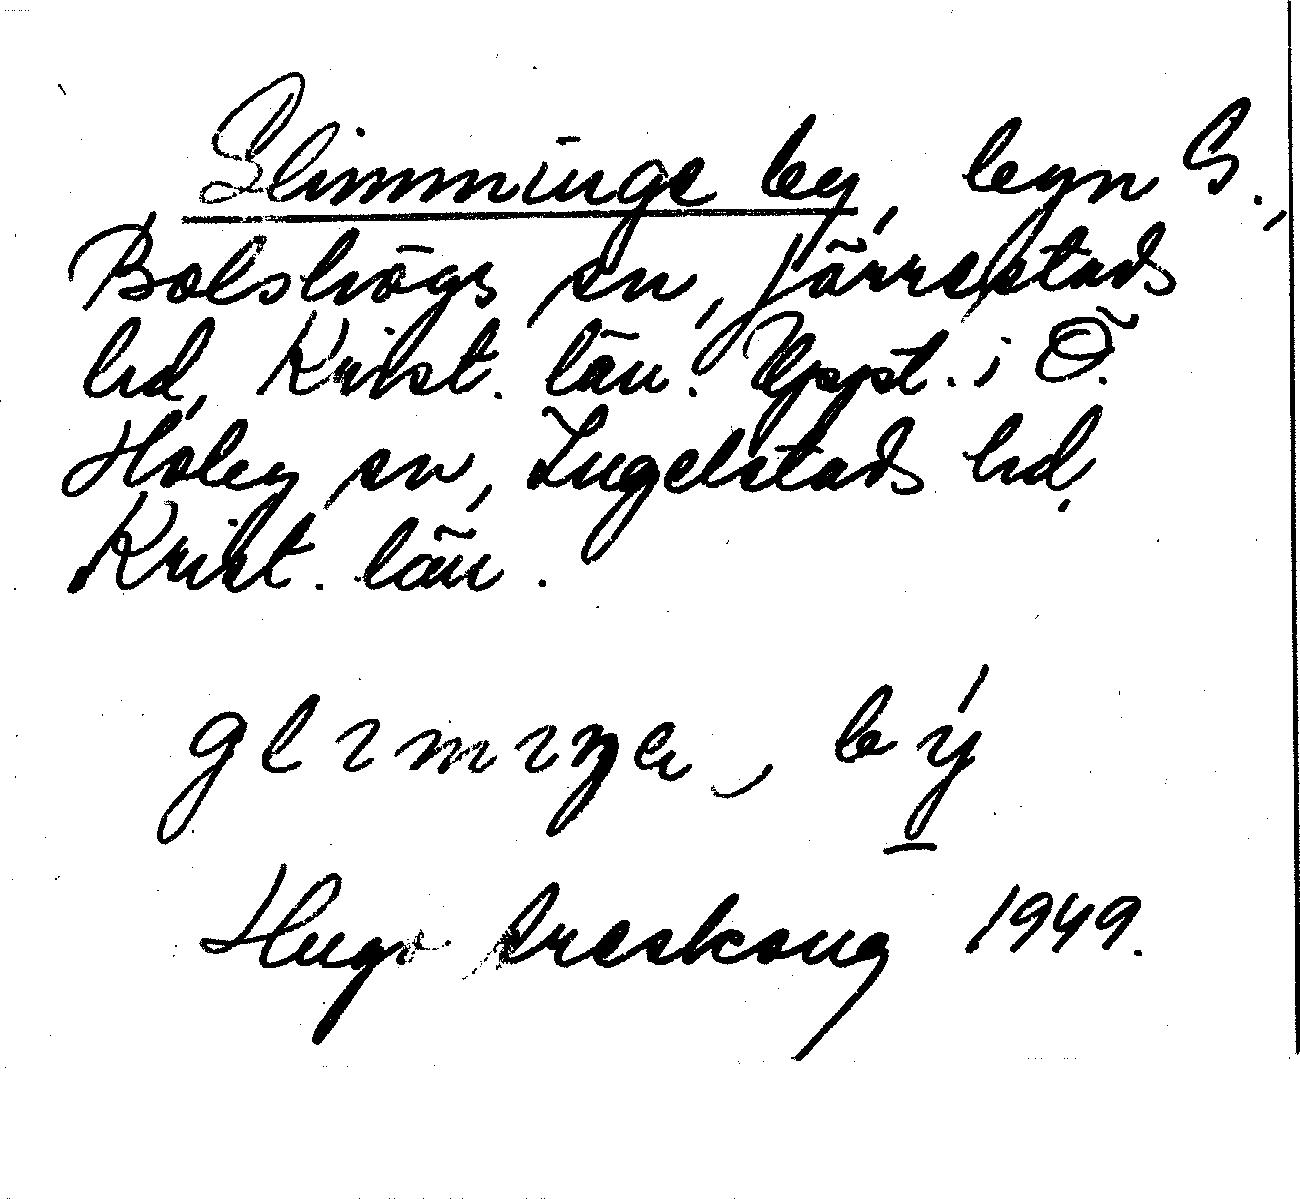 Glimminge by, byn G.,
Bolshögs sn, Järrestads
hd, Krist. län. Uppt. i Ö.
Hoby sn, Ingelstads hd,
Krist. län.
glımıŋa, bý
Hugo Areskoug 1949.